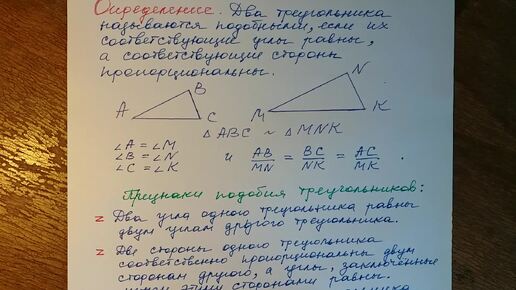 Определение. Два треугольника
называются подобными, если их
соответствующие углы равны,
а соответствующие стороны
пропорциональны.
A B C
M N K
△ABC ~ △MNK
∠A = ∠M
∠B = ∠N и AB/MN = BC/NK = AC/MK.
∠C = ∠K
Признаки подобия треугольников:
Два угла одного треугольника равны
двум углам другого треугольника.
Две стороны одного треугольника
соответственно пропорциональны двум
сторонам другого, а углы, заключённые
между этими сторонами равны.